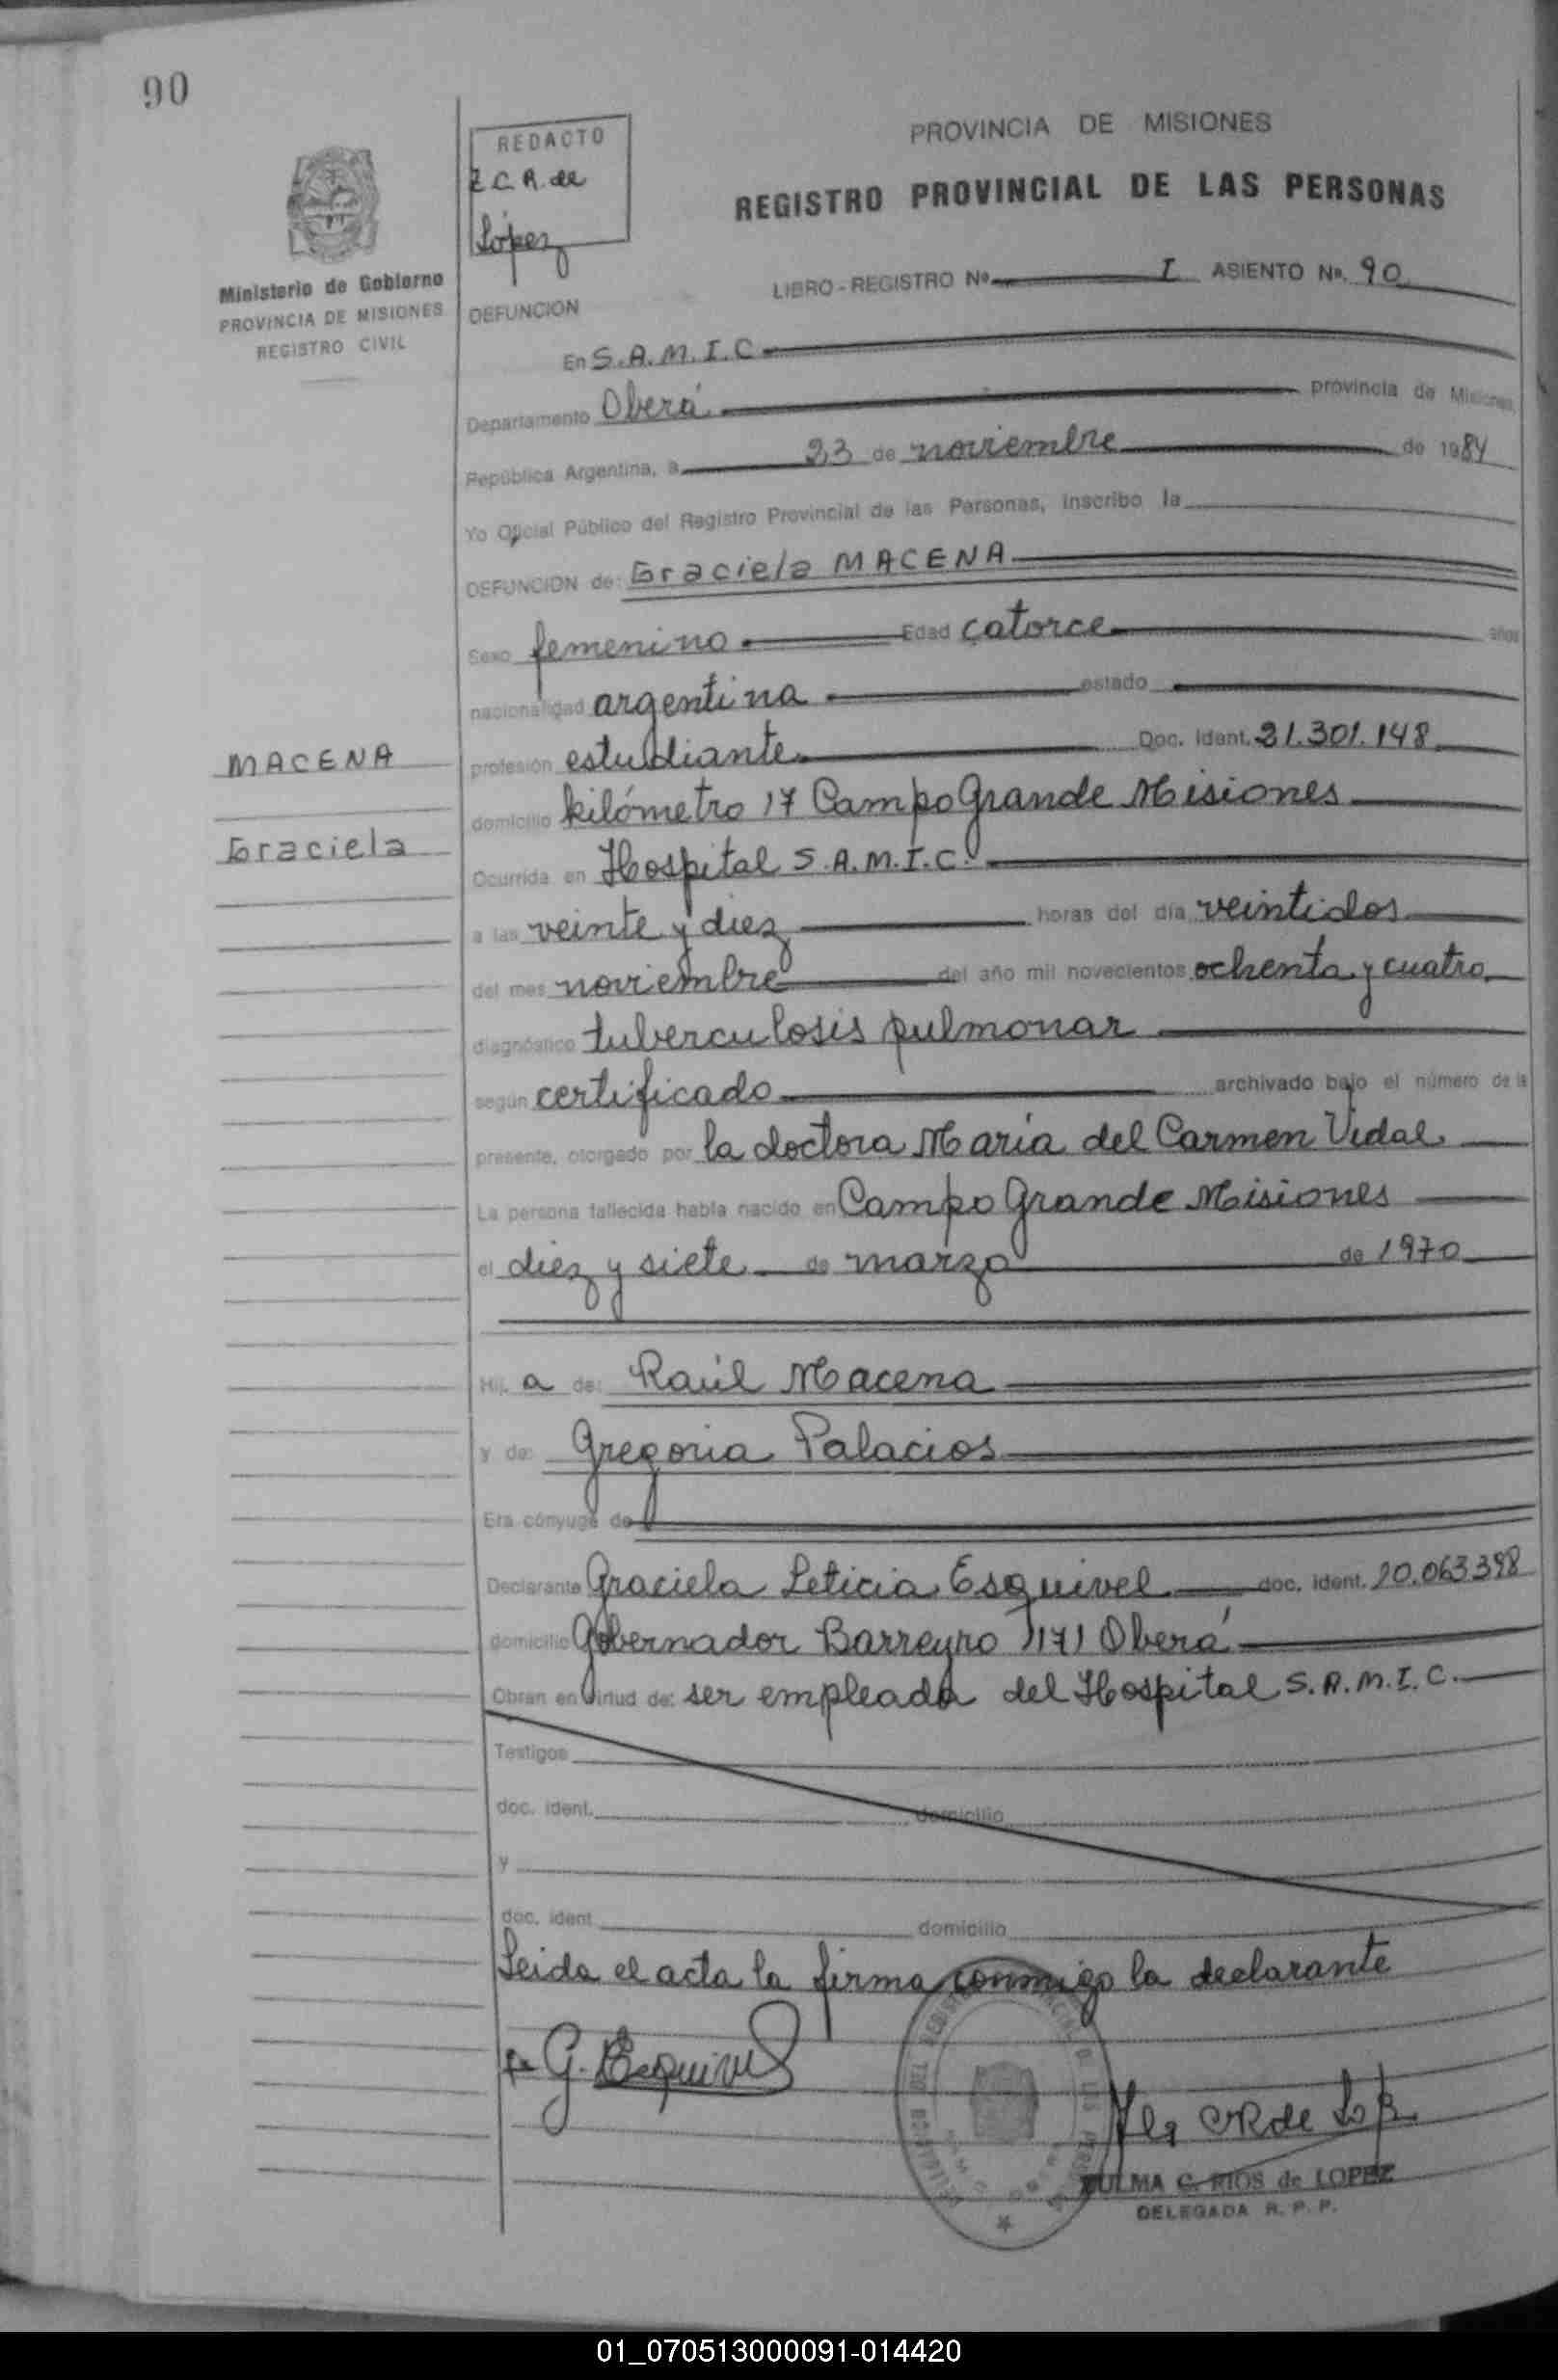 90
REDACTO
Z.C.R. de
López
PROVINCIA DE MISIONES
REGISTRO PROVINCIAL DE LAS PERSONAS
Ministerio de Gobierno
PROVINCIA DE MISIONES
REGISTRO CIVIL
LIBRO-REGISTRO Nº I ASIENTO Nº. 90
DEFUNCION
En S.A.M.I.C
Departamento Oberá provincia de Misiones,
República Argentina, a 23 de noviembre de 1984
Yo Oficial Público del Registro Provincial de las Personas, inscribo la
DEFUNCION de: Graciela MACENA
Sexo femenino Edad catorce años
nacionalidad argentina estado
MACENA
Graciela
profesión estudiante Doc. Ident. 21.301.148
domicilio kilómetro 17 Campo Grande Misiones
Ocurrida en Hospital S.A.M.I.C.
a las veinte y diez horas del día veintidos
del mes noviembre del año mil novecientos ochenta y cuatro
diagnóstico tuberculosis pulmonar
según certificado archivado bajo el número de la
presente, otorgado por la doctora María del Carmen Vidal
La persona fallecida había nacido en Campo Grande Misiones
el diez y siete de marzo de 1970
Hij a de: Raúl Macena
y de: Gregoria Palacios
Era cónyuge de
Declarante Graciela Leticia Esquivel doc. ident. 20.063.398
domicilio Gobernador Barreyro 1171 Oberá
Obran en virtud de: ser empleada del Hospital S.A.M.I.C.
Testigos
doc. ident. domicilio
y
doc. ident domicilio
Leida el acta la firma conmigo la declarante
G. Esquivel
ZULMA C. RIOS de LOPEZ
DELEGADA R. P. P.
01_070513000091-014420